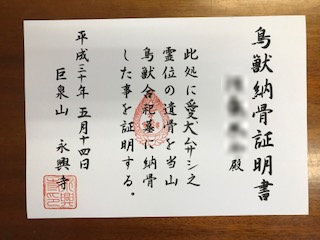 鳥獣納骨証明書
殿
此処に愛犬ムサシ之
霊位の遺骨を当山
鳥獣合祀墓に納骨
した事を証明する。
平成三十年五月十四日
巨泉山 永興寺